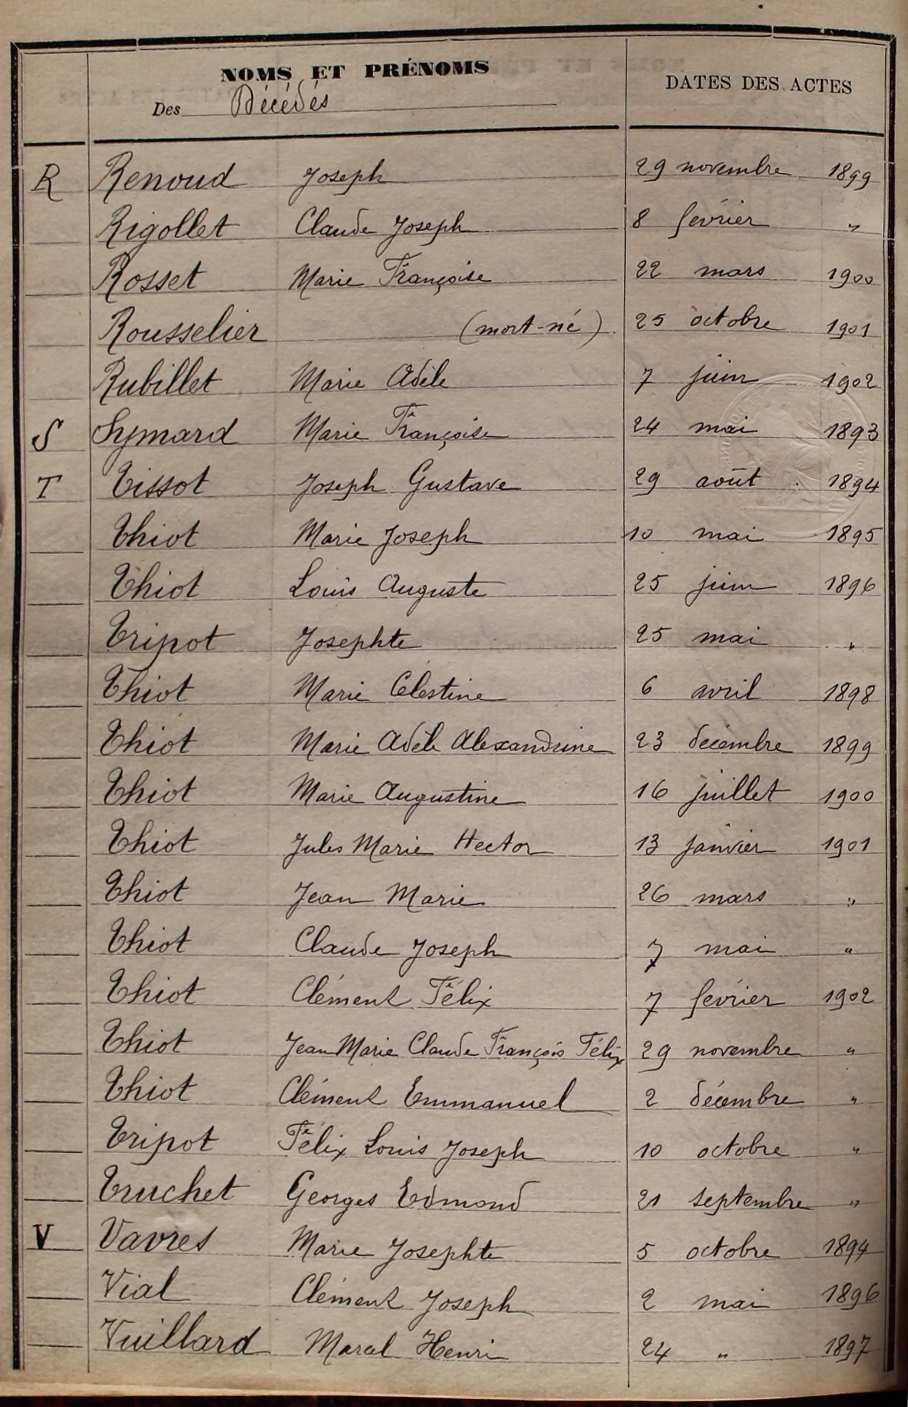 NOMS ET PRÉNOMS
Des Décédés
DATES DES ACTES
R Renoud Joseph 29 novembre 1899
Rigollet Claude Joseph 8 février "
Rosset Marie Françoise 22 mars 1900
Rousselier (mort-né) 25 octobre 1901
Rubillet Marie Adèle 7 juin 1902
S Symard Marie Françoise 24 mai 1893
T Tissot Joseph Gustave 29 août 1894
Thiot Marie Joseph 10 mai 1895
Thiot Louis Auguste 25 juin 1896
Tripot Josephte 25 mai "
Thiot Marie Célestine 6 avril 1898
Thiot Marie Adèle Alexandrine 23 décembre 1899
Thiot Marie Augustine 16 juillet 1900
Thiot Jules Marie Hector 13 janvier 1901
Thiot Jean Marie 26 mars "
Thiot Claude Joseph 7 mai "
Thiot Clément Félix 7 février 1902
Thiot Jean Marie Claude François Félix 29 novembre "
Thiot Clément Emmanuel 2 décembre "
Tripot Félix Louis Joseph 10 octobre "
Truchet Georges Edmond 21 septembre "
V Vavres Marie Josephte 5 octobre 1894
Vial Clément Joseph 2 mai 1896
Vuillard Maral Henri 24 " 1897